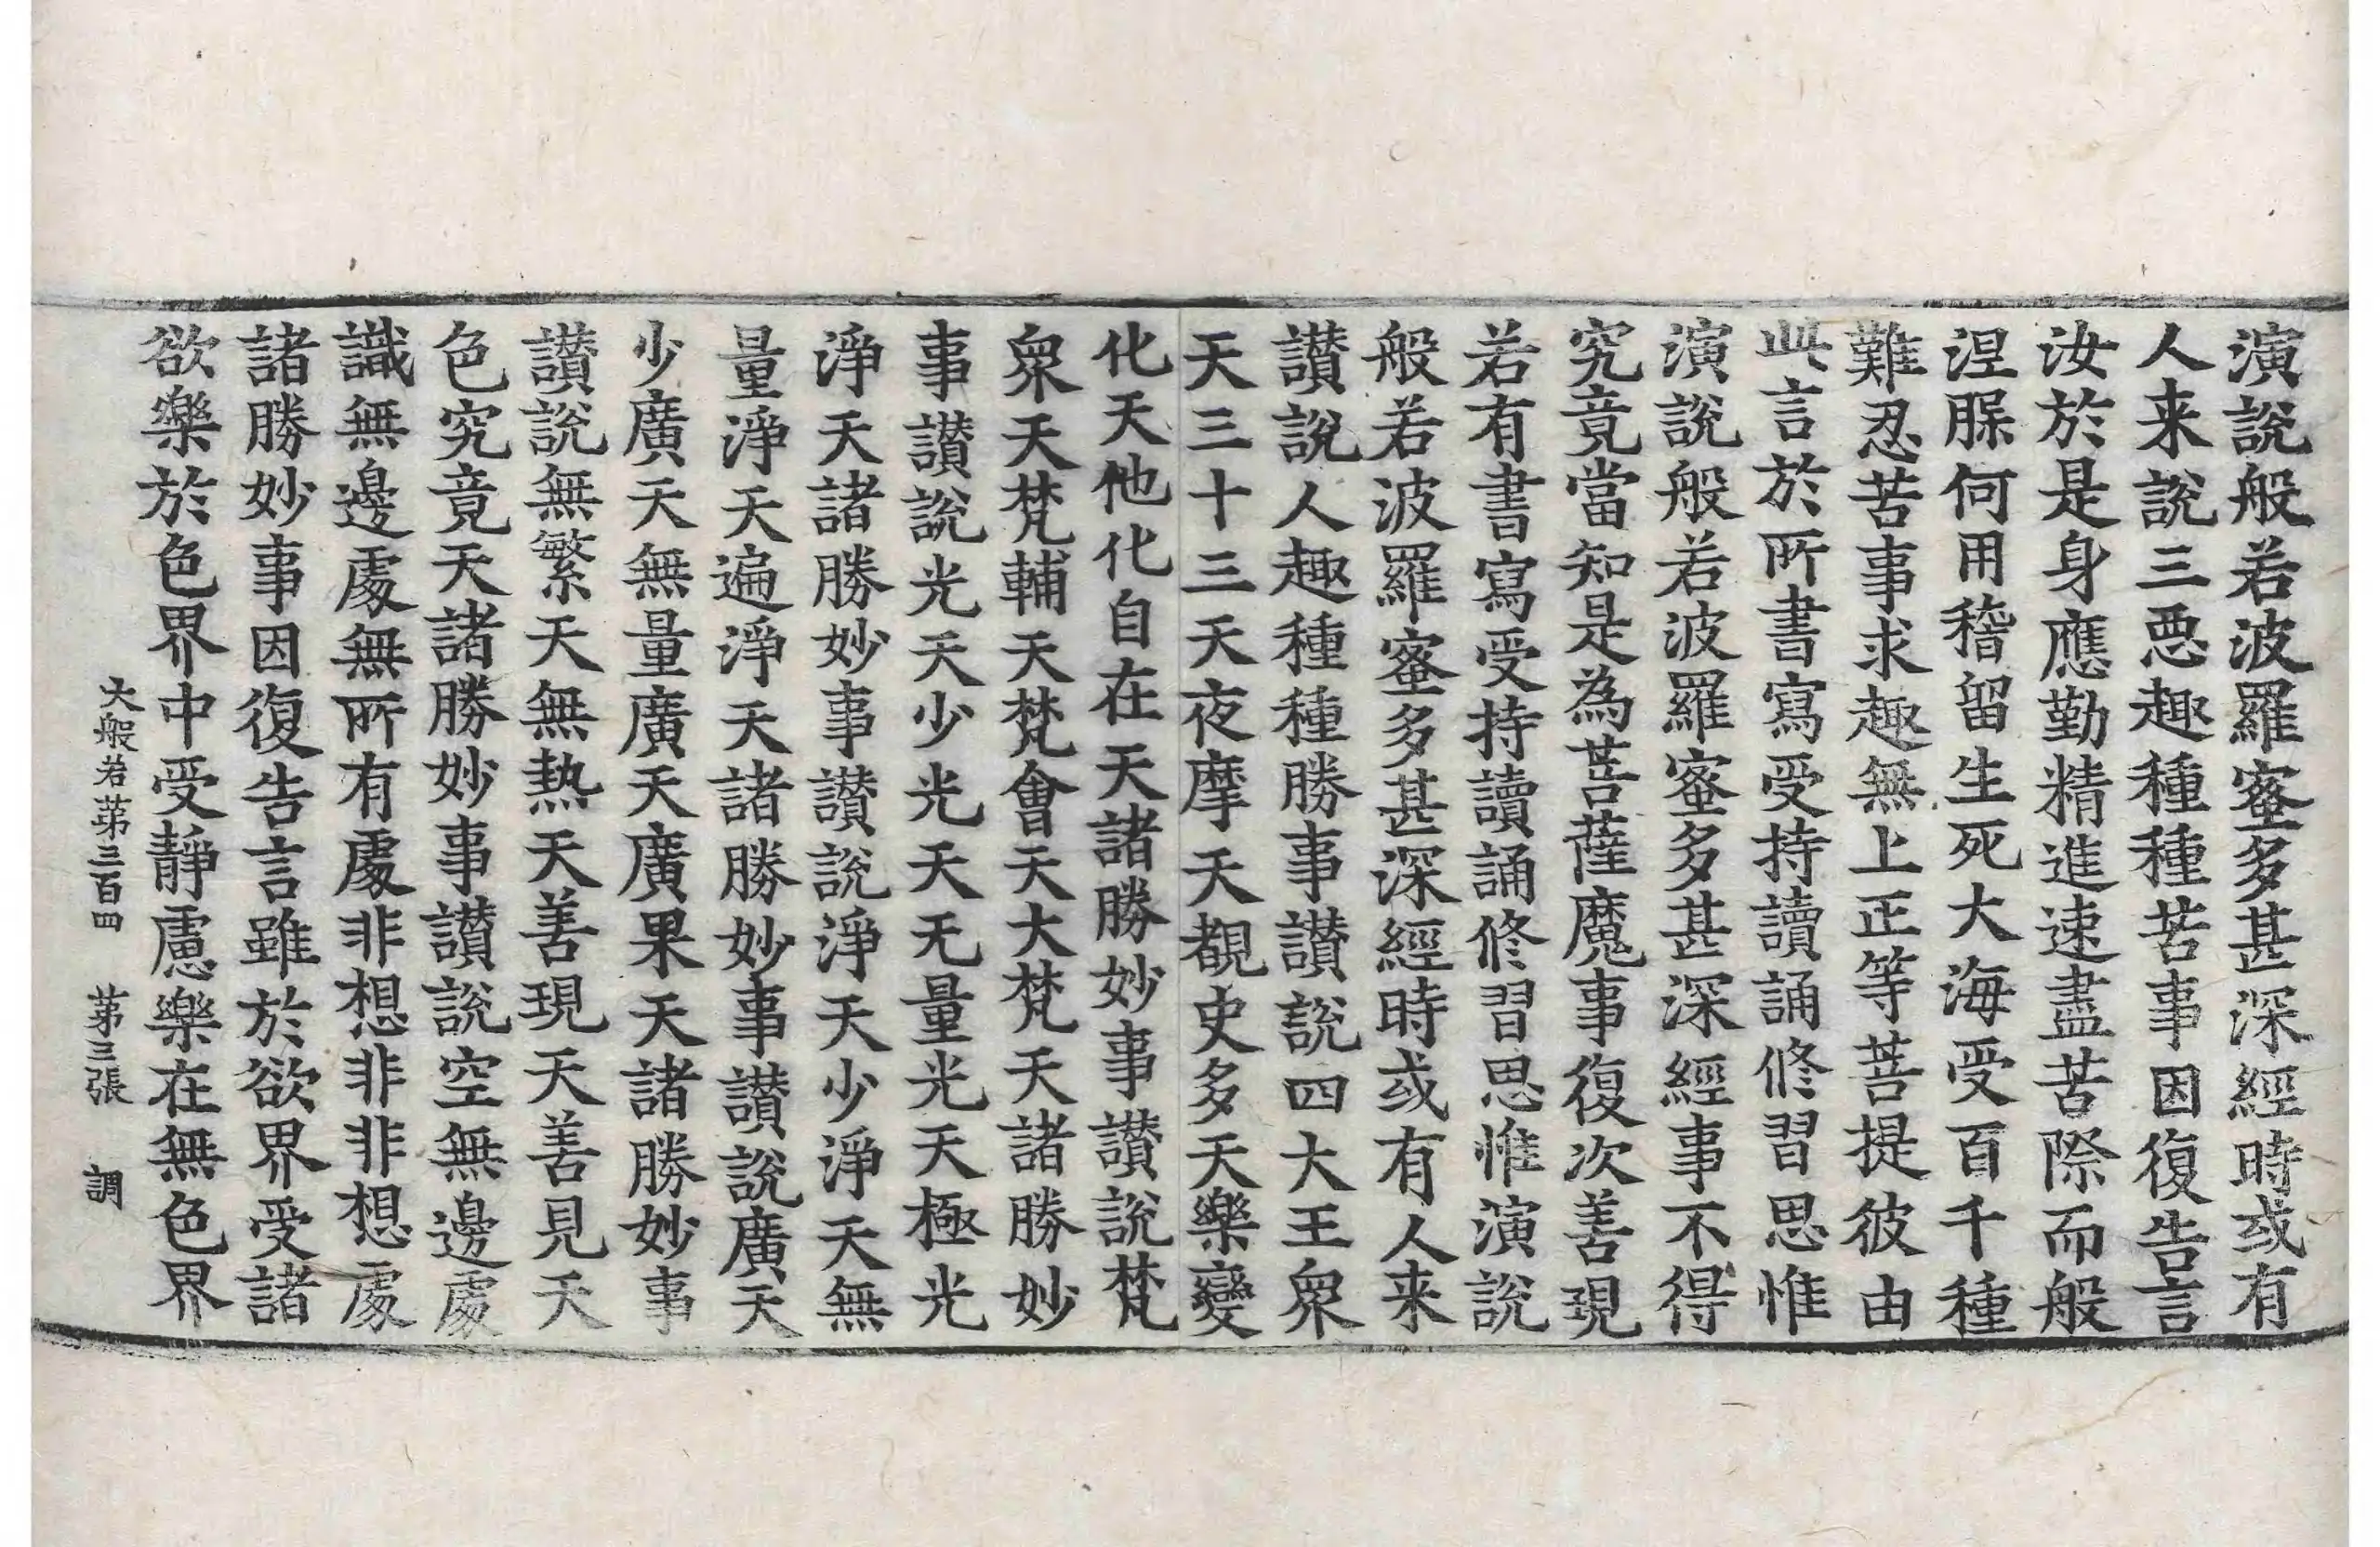 演說般若波羅蜜多甚深經時或有
人来說三惡趣種種苦事因復告言
汝於是身應勤精進速盡苦際而般
涅槃何用稽留生死大海受百千種
難忍苦事求趣無上正等菩提彼由
此言於所書寫受持讀誦修習思惟
演說般若波羅蜜多甚深經事不得
究竟當知是為菩薩魔事復次善現
若有書寫受持讀誦修習思惟演說
般若波羅蜜多甚深經時或有人来
讃說人趣種種勝事讃說四大王衆
天三十三天夜摩天覩史多天樂變
化天他化自在天諸勝妙事讃說梵
衆天梵輔天梵會天大梵天諸勝妙
事讃說光天少光天无量光天極光
淨天諸勝妙事讃說淨天少淨天無
量淨天遍淨天諸勝妙事讃說廣天
少廣天無量廣天廣果天諸勝妙事
讃說無繁天無熱天善現天善見天
色究竟天諸勝妙事讃說空無邊處
識無邊處無所有處非想非非想處
諸勝妙事因復告言雖於欲界受諸
欲樂於色界中受靜慮樂在無色界
大般若苐三百四 苐三張 調